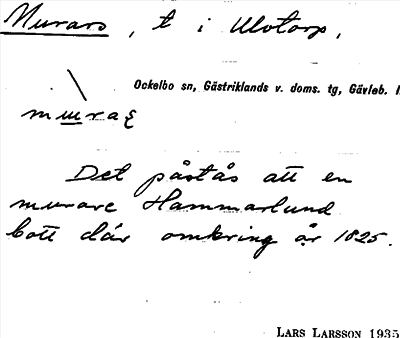 Murars, t i Ulvtorp,
Ockelbo sn, Gästriklands v. doms. tg, Gävleb. l
Det påstås att en
murare Hammarlund
bott där omkring år 1825.
LARS LARSSON 1935